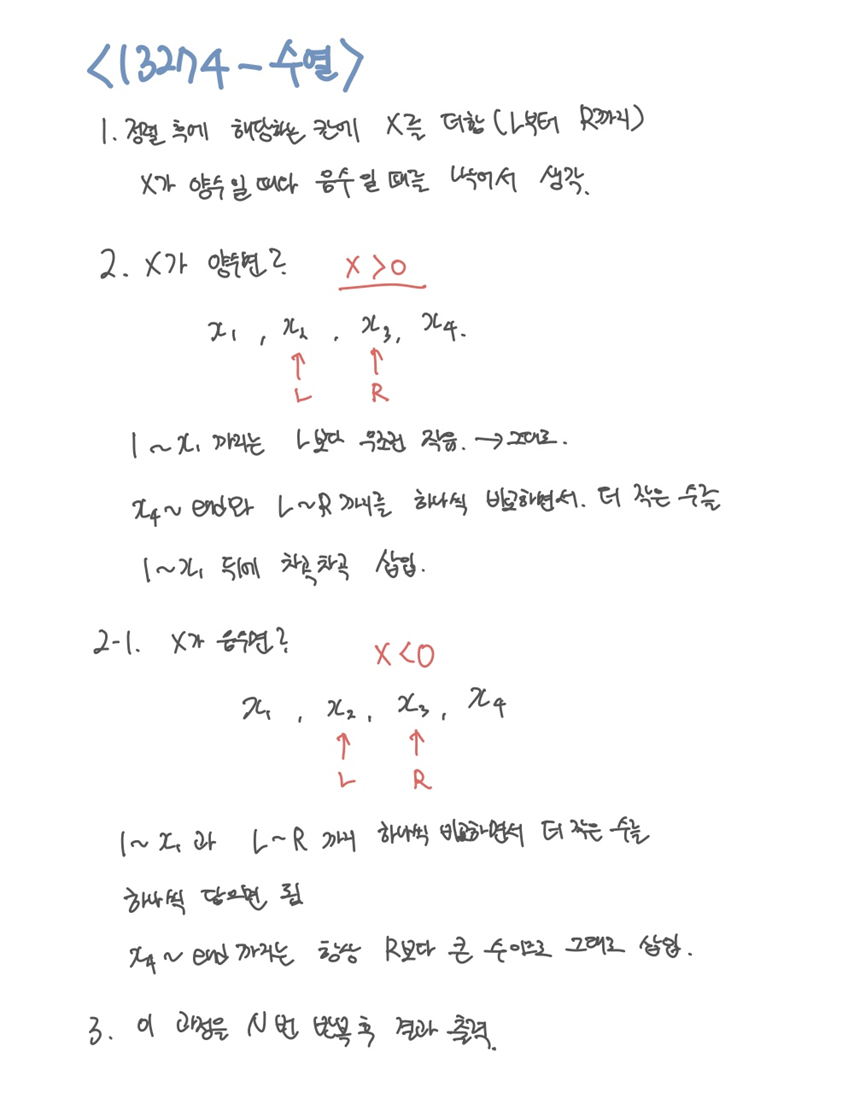 <13274 - 수열>
1. 정렬 후에 해당하는 칸에 X를 더함 (L부터 R까지)
X가 양수일 때와 음수일 때를 나눠어서 생각.
2. X가 양수면?
X > 0
x₁ , x₂ , x₃, x₄.
↑ ↑
L R
1 ~ x₁ 까지는 L보다 무조건 작음. → 그대로.
x₄ ~ end와 L ~ R 까지를 하나씩 비교하면서. 더 작은 수를
1 ~ x₁ 뒤에 차곡차곡 삽입.
2-1. X가 음수면?
X < 0
x₁ , x₂ , x₃ , x₄
↑ ↑
L R
1 ~ x₁ 과 L ~ R 까지 하나씩 비교하면서 더 작은 수를
하나씩 담으면 됨
x₄ ~ end 까지는 항상 R보다 큰 수이므로 그대로 삽입.
3. 이 과정을 N번 반복 후 결과 출력.